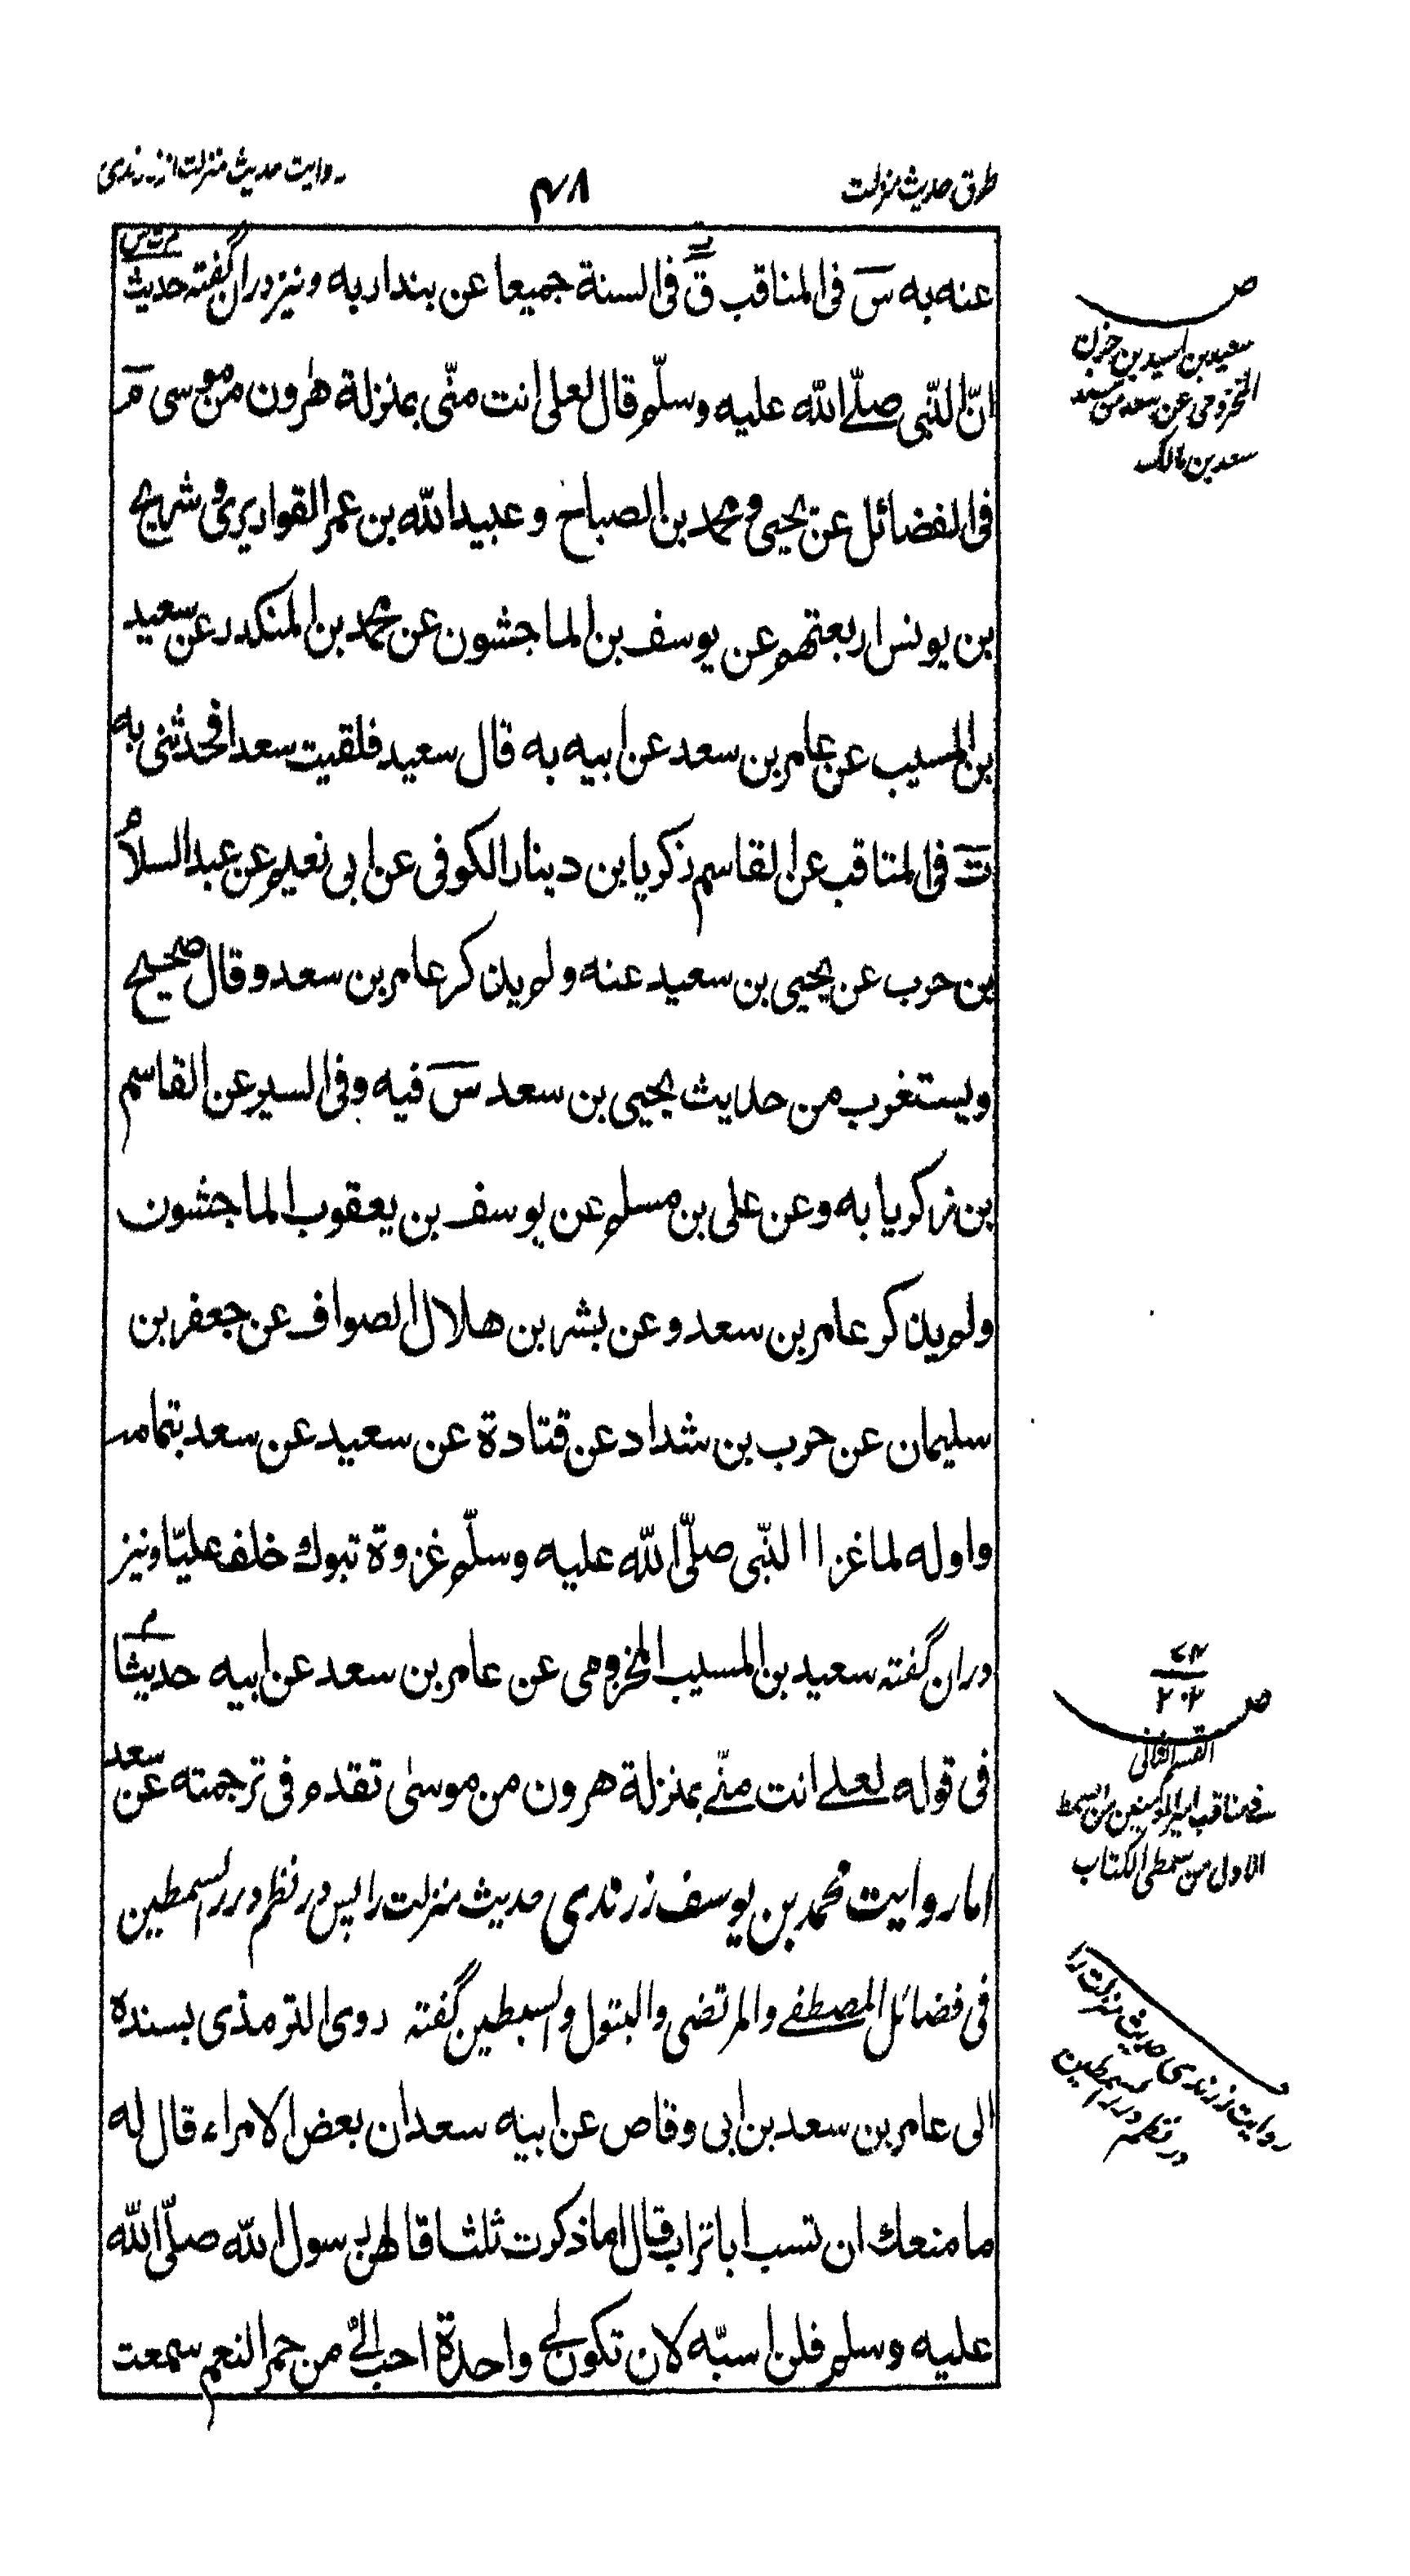 طرق حدیث منزلت
۴۸
روایت حدیث منزلت از زرندی
م ت س
عنه به سؔ فی المناقب قؔ فی السنة جمیعا عن بندار به ونیز دران گفته حدیث
انّ النّبی صلّے الله علیه وسلّم قال لعلی انت منّی بمنزلة هٰرون من موسی مؔ
فی الفضائل عن یحیی و محمد بن الصباح و عبید الله بن عمر القواریری و شریح
بن یونس اربعتهم عن یوسف بن الماجشون عن محمد بن المنکدر عن سعید
بن المسیب عن عامر بن سعد عن ابیه به قال سعید فلقیت سعدا فحدثنی به
تؔ فی المناقب عن القاسم زکریا بن دینار الکوفی عن ابی نعیم عن عبد السلام
بن حرب عن یحیی بن سعید عنه ولم یذکر عامر بن سعد وقال صحیح
ویستغرب من حدیث یحیی بن سعد سؔ فیه وفی السیر عن القاسم
بن زکریا به وعن علی بن مسلم عن یوسف بن یعقوب الماجشون
ولم یذکر عامر بن سعد وعن بشر بن هلال الصواف عن جعفر بن
سلیمان عن حرب بن شداد عن قتادة عن سعید عن سعد بتمامه
واوله لما غزا النّبی صلّی الله علیه وسلّم غزوة تبوك خلف علیّا ونیز
دران گفته سعید بن المسیب المخزومی عن عامر بن سعد عن ابیه حدیثا م
فی قوله لعلے انت منّے بمنزلة هرون من موسیٰ تقدم فی ترجمته عن سعد
اما روایت محمد بن یوسف زرندی حدیث منزلت را پس در نظم درر السمطین
فی فضائل المصطفے والمرتضی والبتول والسبطین گفته روی الترمذی بسنده
الی عامر بن سعد بن ابی وقاص عن ابیه سعد ان بعض الامراء قال له
ما منعك ان تسب ابا تراب قال اما ذکرت ثلثا قالهن رسول الله صلّی الله
علیه وسلم فلن اسبّه لان تکون لی واحدة احب الیّ من حمر النعم سمعت
ص
سعید بن اسید بن حزن
المخزومی عن سعد من مسند
سعد بن مالک
ص
القسم الثانی
فی مناقب امیر المومنین من السمط
الاول من سمطی الکتاب
روایت زرندی حدیث منزلت را
در نظم درر السمطین